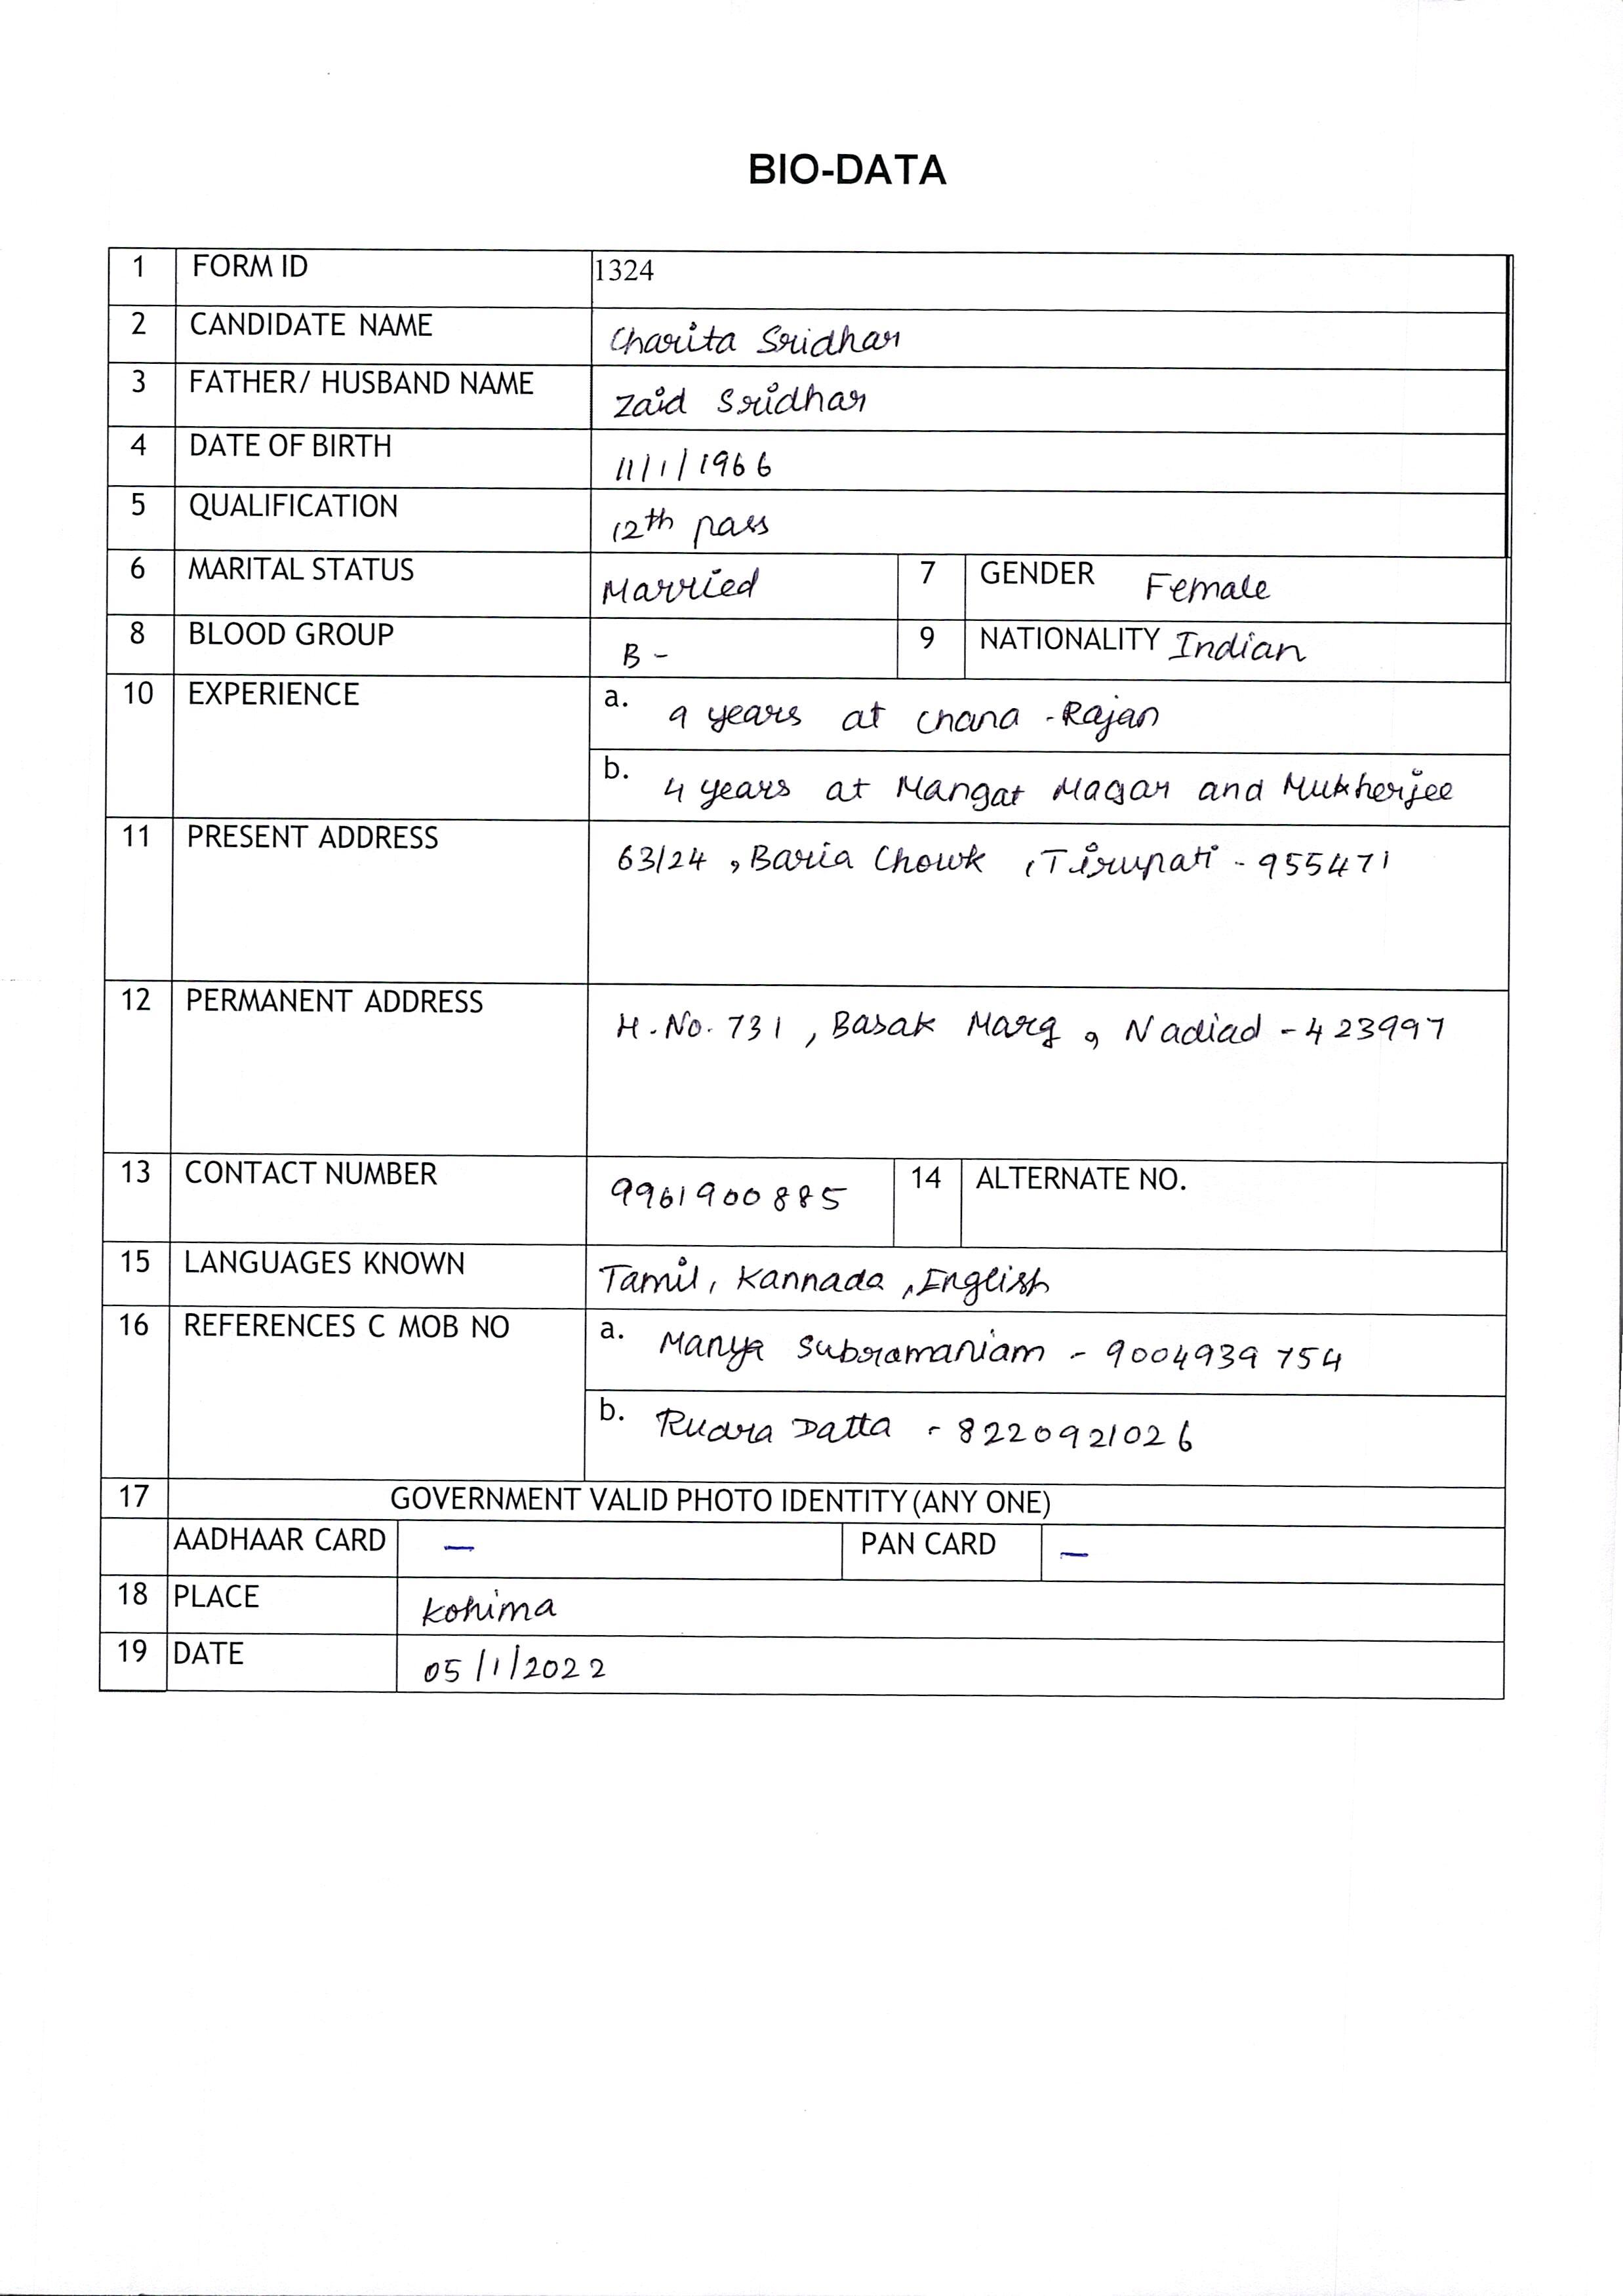 BIO-DATA
1 FORM ID 1324
2 CANDIDATE NAME Charita Sridhar
3 FATHER/ HUSBAND NAME Zaid Sridhar
4 DATE OF BIRTH 11/1/1966
5 QUALIFICATION 12th pass
6 MARITAL STATUS Married 7 GENDER Female
8 BLOOD GROUP B- 9 NATIONALITY Indian
10 EXPERIENCE a. 9 years at Chana-Rajan
b. 4 years at Mangat Magar and Mukherjee
11 PRESENT ADDRESS 63/24, Baria Chowk, Tirupati - 955471
12 PERMANENT ADDRESS H.No. 731, Basak Marg, Nadiad - 423997
13 CONTACT NUMBER 9961900885 14 ALTERNATE NO.
15 LANGUAGES KNOWN Tamil, Kannada, English
16 REFERENCES C MOB NO a. Manya Subramaniam - 9004939754
b. Rudra Datta - 8220921026
17 GOVERNMENT VALID PHOTO IDENTITY (ANY ONE)
AADHAAR CARD - PAN CARD -
18 PLACE Kohima
19 DATE 05/1/2022